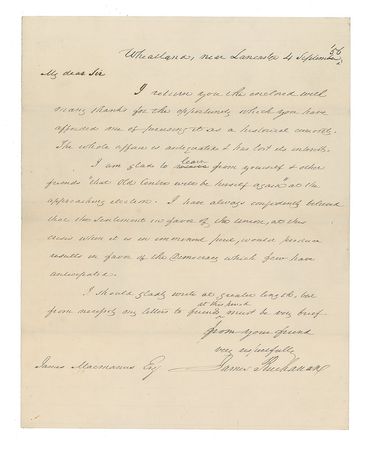 Wheatland, near Lancaster 4 September '56
My dear Sir
I return you the enclosed with
many thanks for the opportunity which you have
afforded me of perusing it as a historical curiosity.
The whole affair is antiquated & has lost its interest.
I am glad to learn from yourself & other
friends "that Old Centre will be herself again" at the
approaching election. I have always confidently believed
that the sentiment in favor of the Union, at this
crisis when it is in imminent peril, would produce
results in favor of the Democracy which few have
anticipated.
I should gladly write at greater length, but
from necessity my letters to friends at this period must be very brief.
from your friend
very respectfully
James Buchanan
James Macmanus Esq